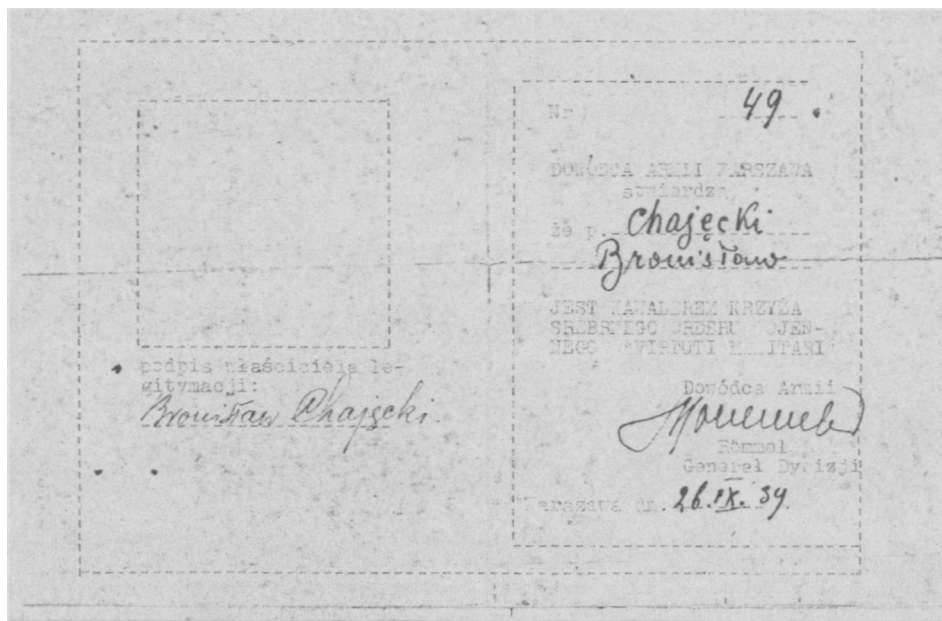 podpis właściciela le-
gitymacji:
Bronisław Chajęcki
Nr 49
DOWÓDCA ARMII WARSZAWA
stwierdza,
że p. Chajęcki
Bronisław
JEST KAWALEREM KRZYŻA
SREBRNEGO ORDERU WOJEN-
NEGO "VIRTUTI MILITARI"
Dowódca Armii
Rómmel
Generał Dywizji
Warszawa dn. 26.IX.39.